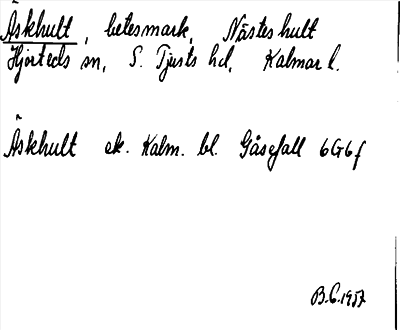 Äskhult, betesmark, Nästeshult
Hjorteds sn, S. Tjusts hd, Kalmar l.
Äskhult ek. Kalm. bl. Gåsefall 6G6f
B.C. 1957